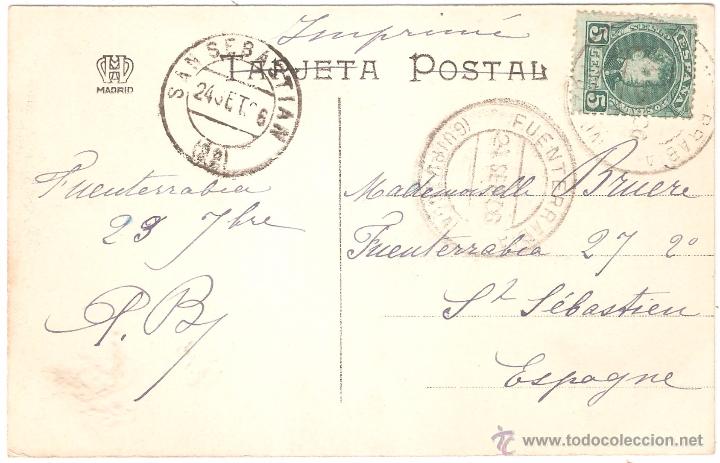 Imprimé
TARJETA POSTAL
HAM
MADRID
SAN SEBASTIAN
24 SET. 06
(22)
FUENTERRABIA
(GUIPUZCOA)
5
ESPAÑA
5
Fuenterrabia
23 7bre
A. B.
Mademoiselle Bruere
Fuenterrabia 27 2º
St Sébastien
Espagne
www.todocoleccion.net